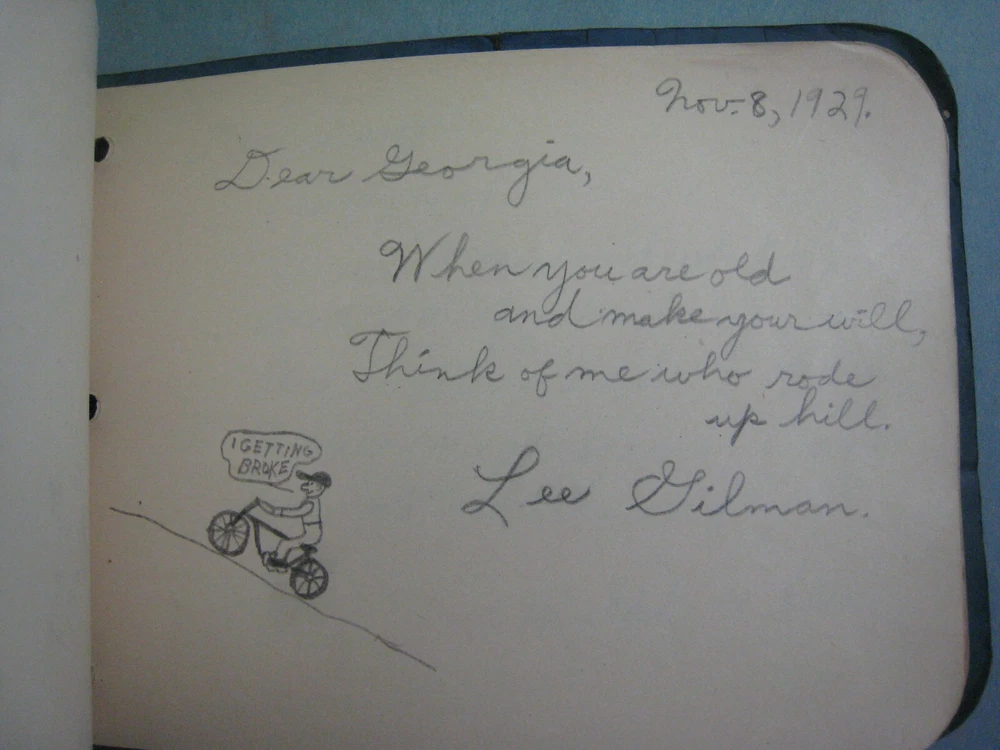 Nov. 8, 1929.
Dear Georgia,
When you are old
and make your will,
Think of me who rode
up hill.
I GETTING
BROKE
Lee Gilman.